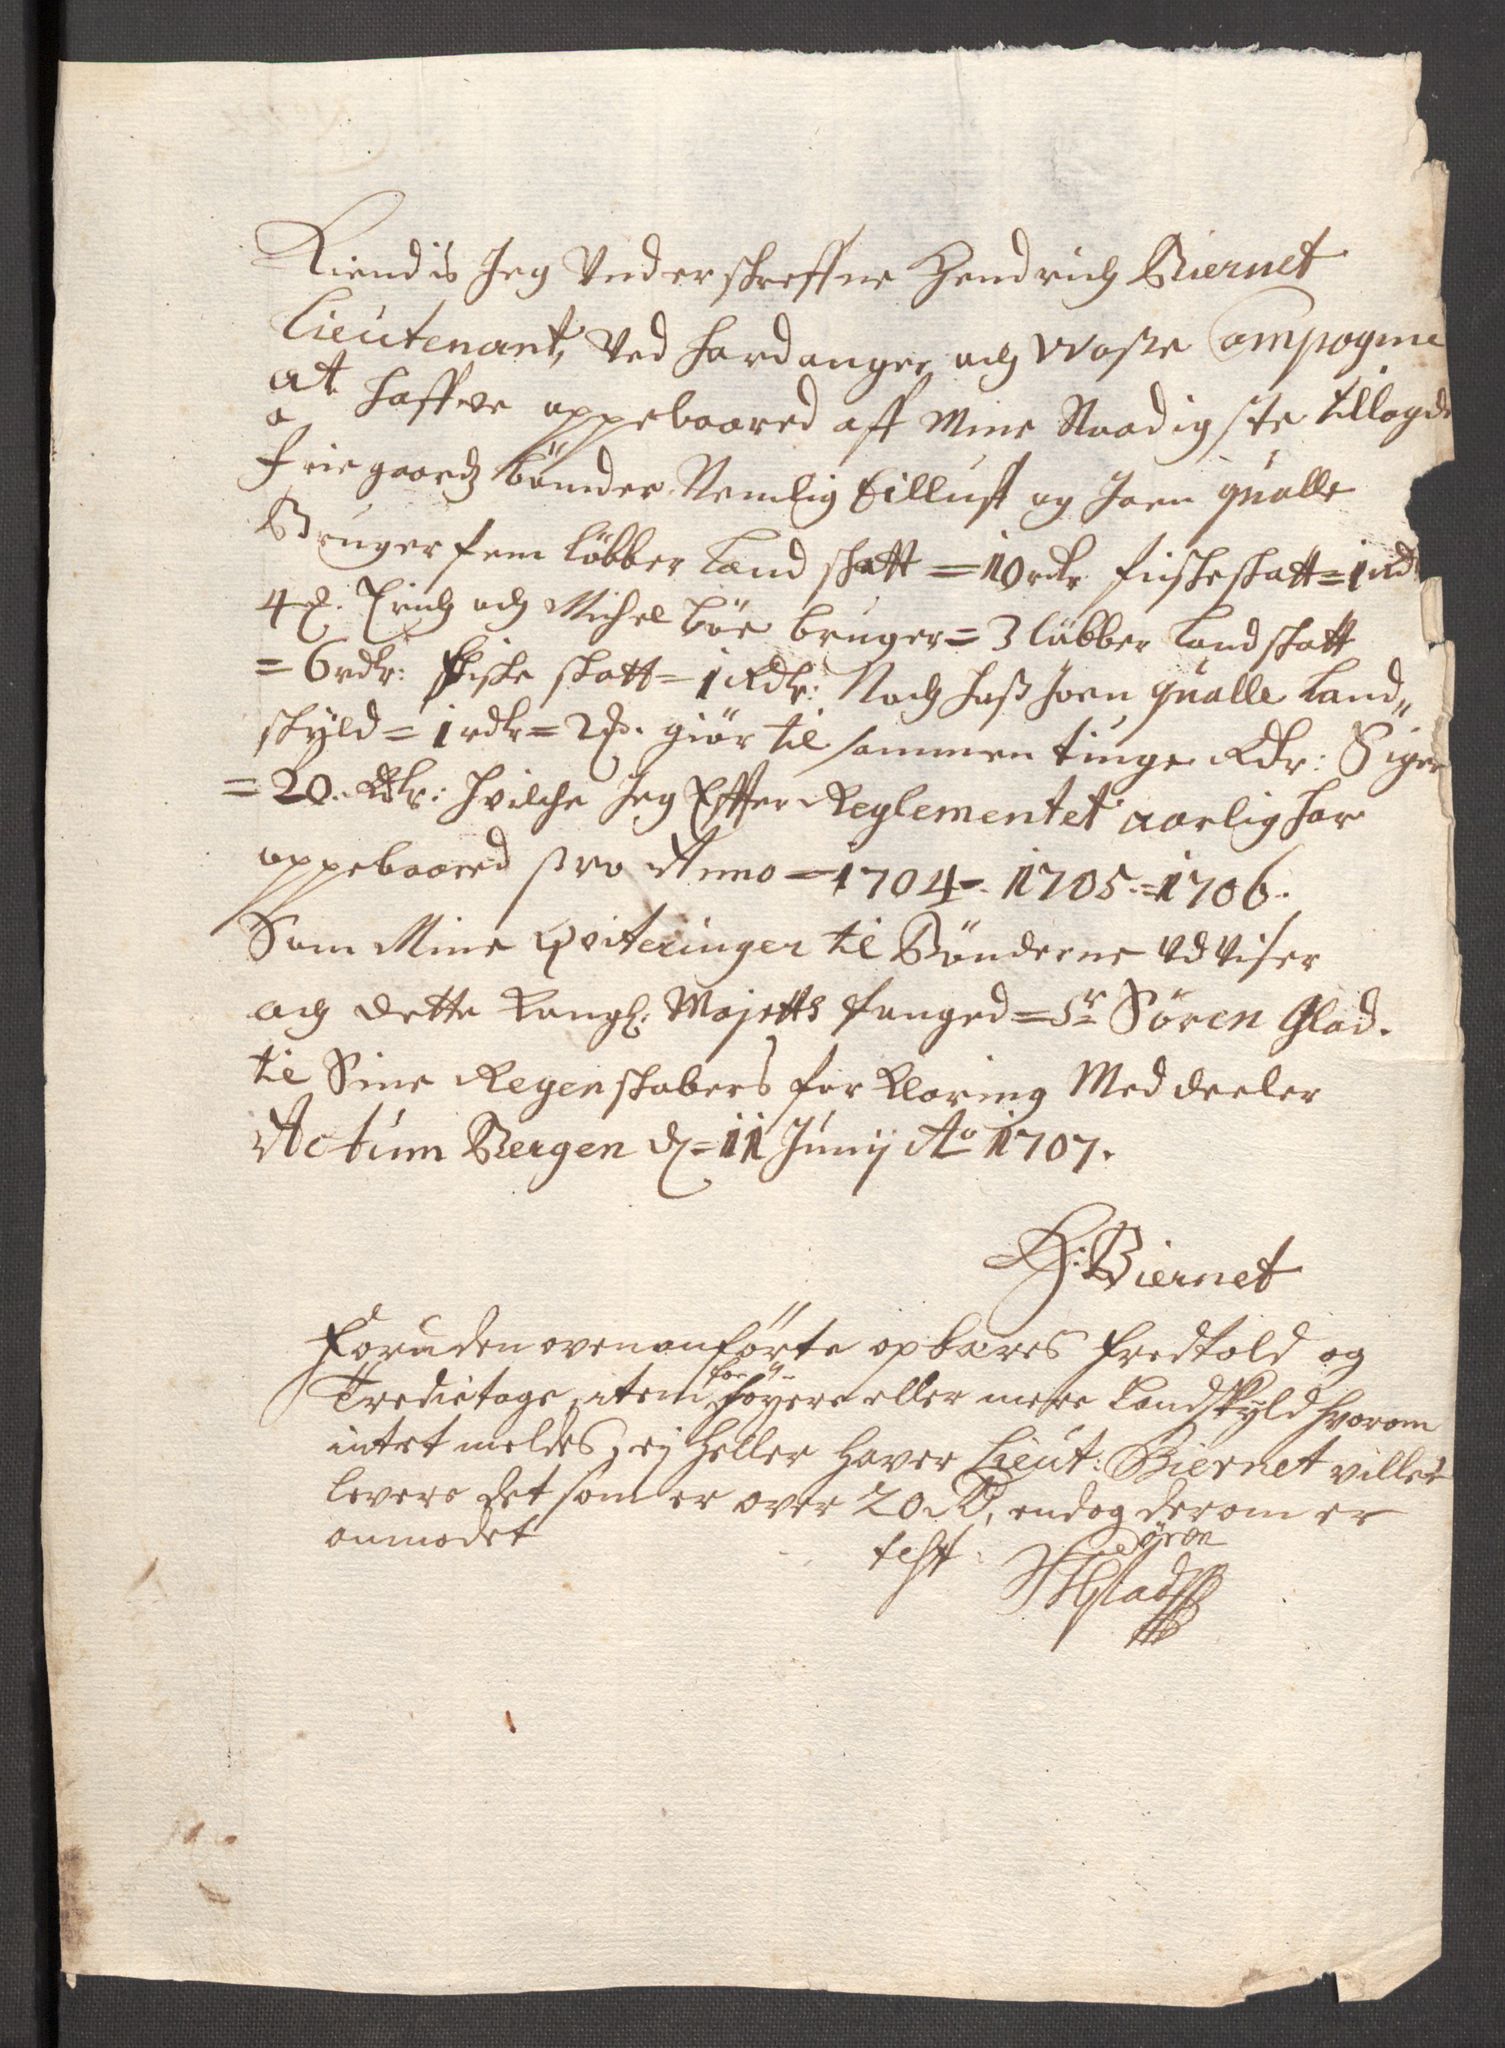 Kiendis Jeg Underschreffne Hendrich Biernet
Lieutenant, Ved Hardanger och Wosse Compagnie
at haffve oppebaared aff Mine Naadigste tillagde
friegaardz bönder Nemlig Eilluff og Joen qualle
Bruger fem löbber Land schatt = 10 rdr fiskeskatt = 1 Rd
4 Erich och Michel böe bruger = 3 löbber Landskatt
= 6 rdr: fiske skatt = 1 Rdr: Noch haß Joen qualle Land„
skyld = 1 rdr = 2 giör til sammen tiuge Rdr: Siger
= 20. Rdr: hvilche Jeg Effter Reglementet aarlig har
oppebaared pro Anno = 1704 = 1705 = 1706.
Som Mine Qviteringer til Bönderne Udviser
och dette Kongl: Majestts fouged = Sr Sören Glad.
til Sine Regenskabers forklaring Meddeeler
Actum Bergen d = 11 Junij Ao 1707.
H: Biernet
Foruden ovenanförte opbæres Fredtold og
Tredietage, item for höyere eller mere Landskyld hvorom
intet meldes, ej heller haver Lieut: Biernet villet
levere det som er over 20 Rd, endog derom er
anmodet
test:
Sören
Glad